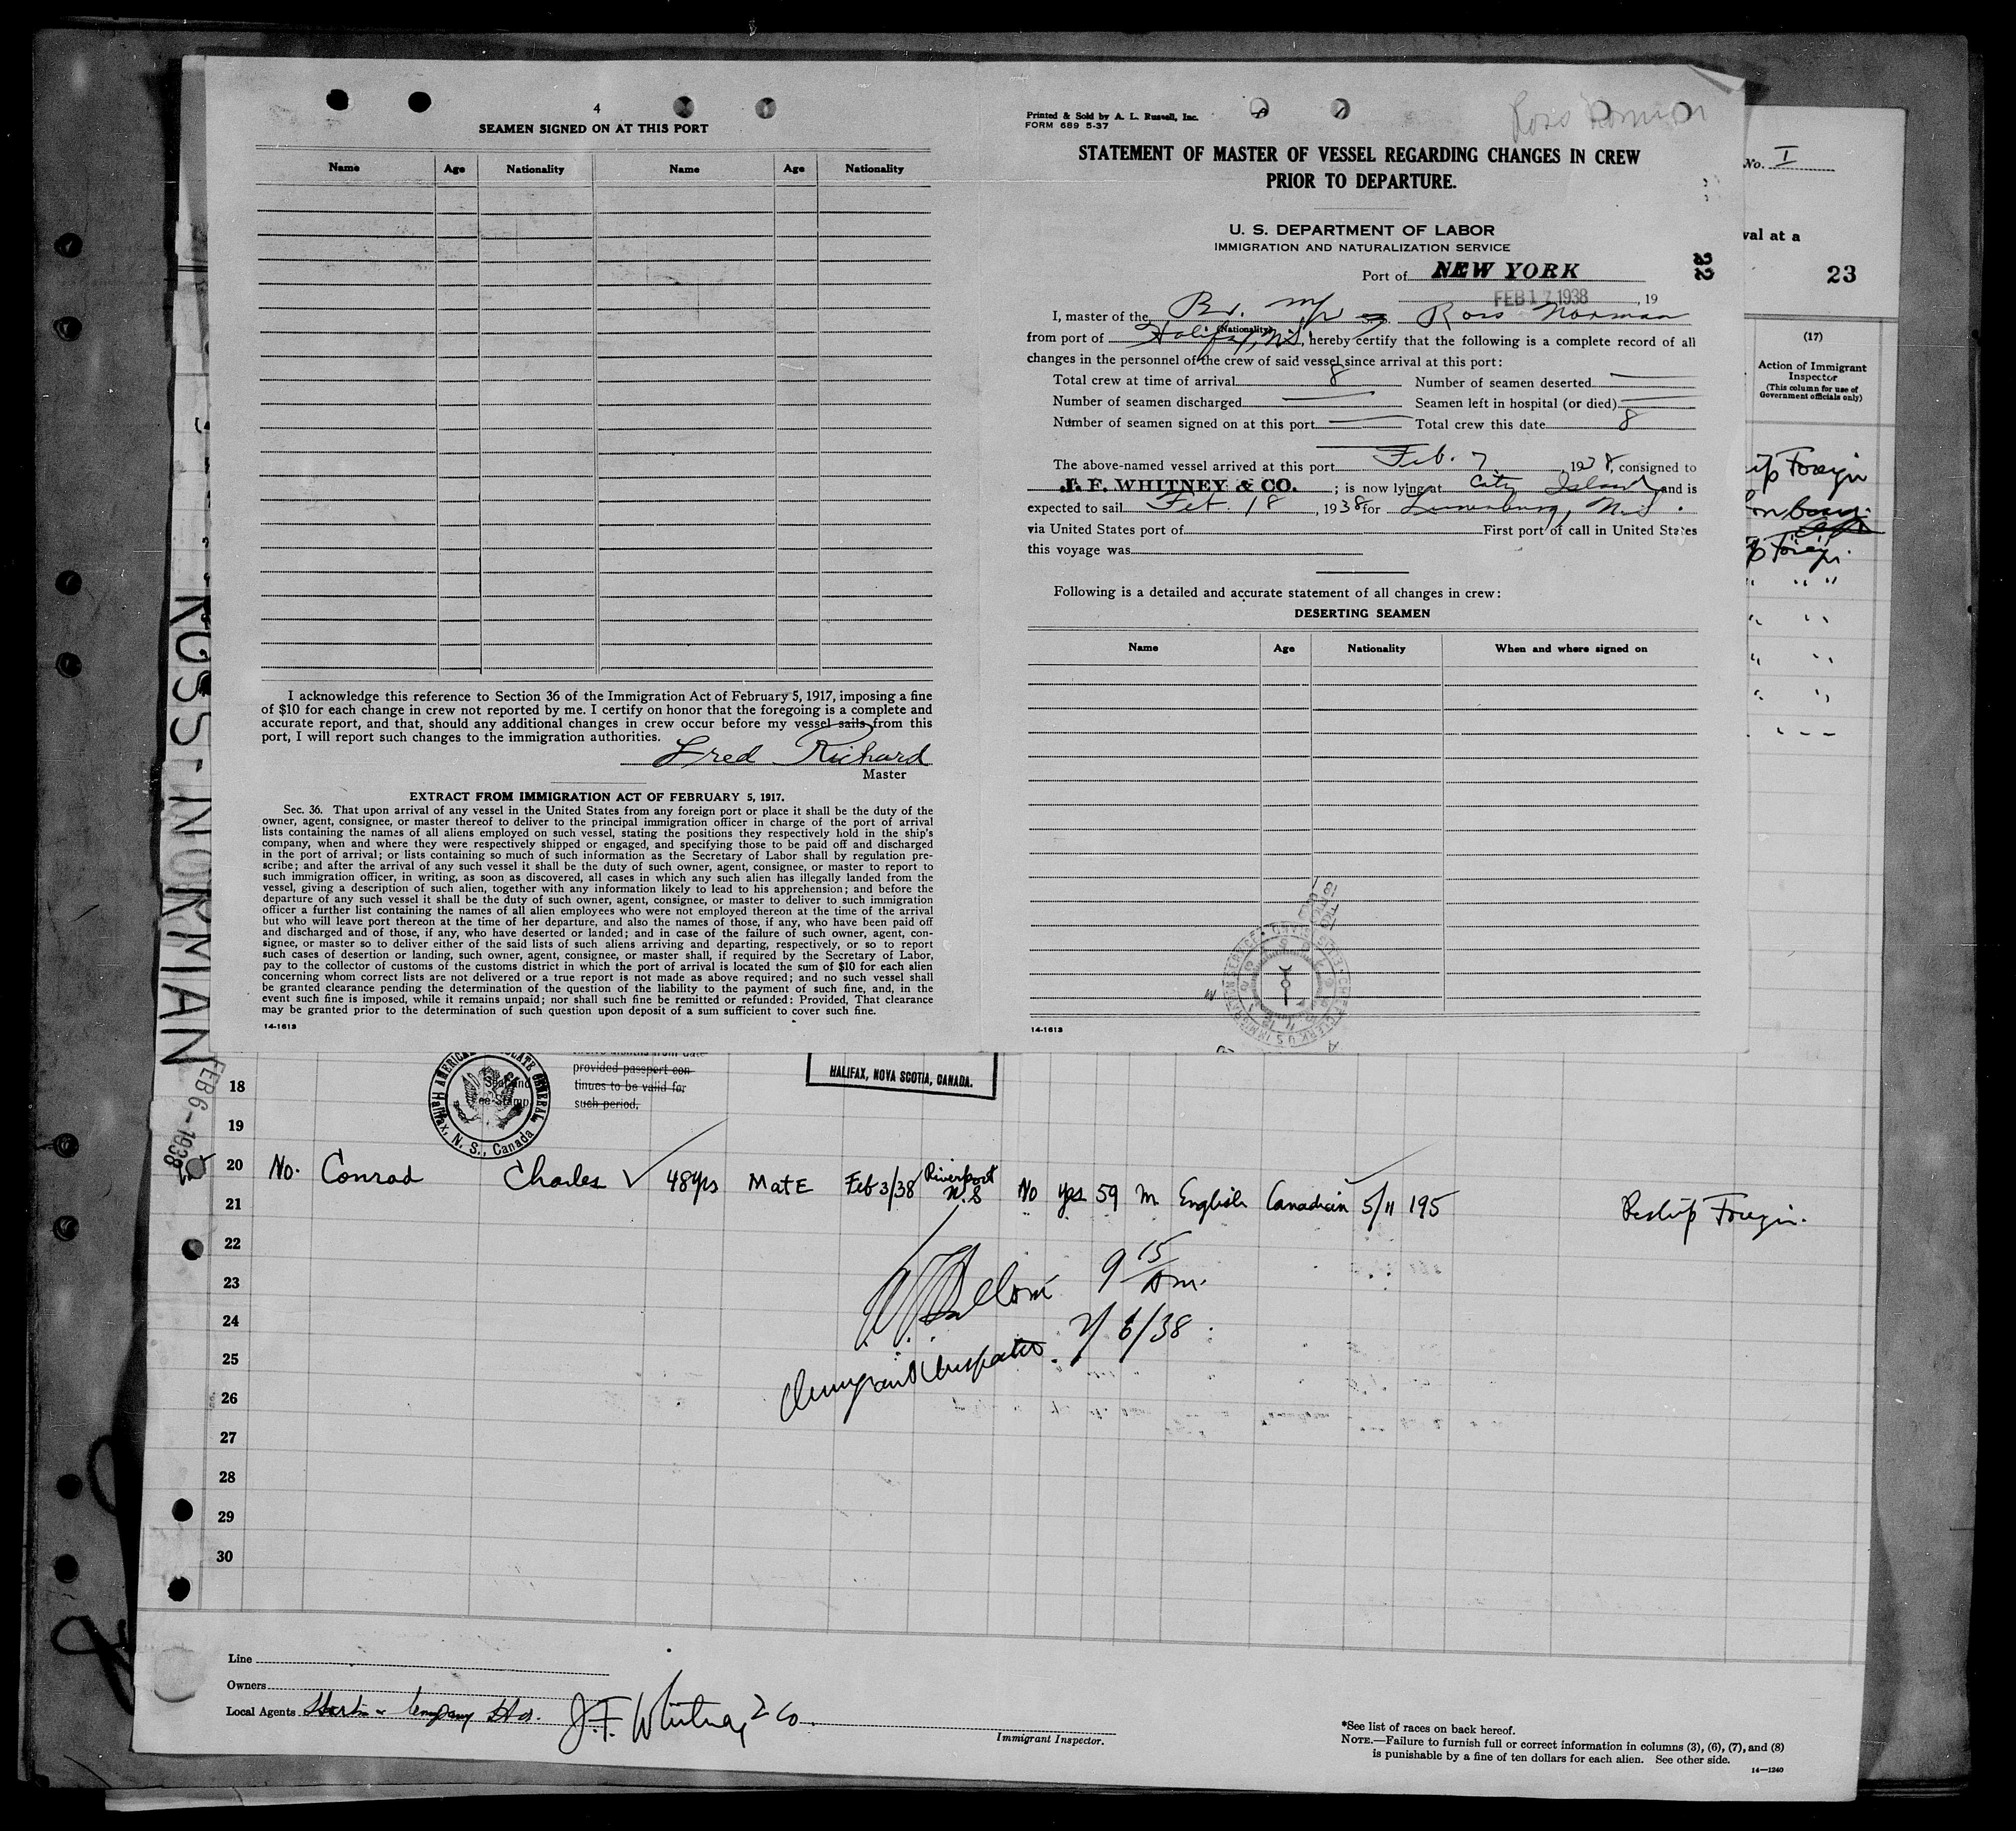 4
SEAMEN SIGNED ON AT THIS PORT
Name Age Nationality Name Age Nationality
I acknowledge this reference to Section 36 of the Immigration Act of February 5, 1917, imposing a fine
of $10 for each change in crew not reported by me. I certify on honor that the foregoing is a complete and
accurate report, and that, should any additional changes in crew occur before my vessel sails from this
port, I will report such changes to the immigration authorities.
Fred Richard
Master
EXTRACT FROM IMMIGRATION ACT OF FEBRUARY 5, 1917.
Sec. 36. That upon arrival of any vessel in the United States from any foreign port or place it shall be the duty of the
owner, agent, consignee, or master thereof to deliver to the principal immigration officer in charge of the port of arrival
lists containing the names of all aliens employed on such vessel, stating the positions they respectively hold in the ship's
company, when and where they were respectively shipped or engaged, and specifying those to be paid off and discharged
in the port of arrival; or lists containing so much of such information as the Secretary of Labor shall by regulation pre-
scribe; and after the arrival of any such vessel it shall be the duty of such owner, agent, consignee, or master to report to
such immigration officer, in writing, as soon as discovered, all cases in which any such alien has illegally landed from the
vessel, giving a description of such alien, together with any information likely to lead to his apprehension; and before the
departure of any such vessel it shall be the duty of such owner, agent, consignee, or master to deliver to such immigration
officer a further list containing the names of all alien employees who were not employed thereon at the time of the arrival
but who will leave port thereon at the time of her departure, and also the names of those, if any, who have been paid off
and discharged and of those, if any, who have deserted or landed; and in case of the failure of such owner, agent, con-
signee, or master so to deliver either of the said lists of such aliens arriving and departing, respectively, or so to report
such cases of desertion or landing, such owner, agent, consignee, or master shall, if required by the Secretary of Labor,
pay to the collector of customs of the customs district in which the port of arrival is located the sum of $10 for each alien
concerning whom correct lists are not delivered or a true report is not made as above required; and no such vessel shall
be granted clearance pending the determination of the question of the liability to the payment of such fine, and, in the
event such fine is imposed, while it remains unpaid; nor shall such fine be remitted or refunded: Provided, That clearance
may be granted prior to the determination of such question upon deposit of a sum sufficient to cover such fine.
14-1613
Printed & Sold by A. L. Russell, Inc.
FORM 689 5-37
Ross Norman
STATEMENT OF MASTER OF VESSEL REGARDING CHANGES IN CREW
PRIOR TO DEPARTURE.
U. S. DEPARTMENT OF LABOR
IMMIGRATION AND NATURALIZATION SERVICE
22
Port of NEW YORK
FEB 17 1938, 19
I, master of the Br. Ross Norman
(Nationality)
from port of Halifax, N.S., hereby certify that the following is a complete record of all
changes in the personnel of the crew of said vessel since arrival at this port:
Total crew at time of arrival 8 Number of seamen deserted
Number of seamen discharged Seamen left in hospital (or died)
Number of seamen signed on at this port Total crew this date 8
The above-named vessel arrived at this port Feb. 7, 1938, consigned to
J. F. WHITNEY & CO.; is now lying at City Island and is
expected to sail Feb. 18, 1938 for Lunenburg, N.S.
via United States port of First port of call in United States
this voyage was
Following is a detailed and accurate statement of all changes in crew:
DESERTING SEAMEN
Name Age Nationality When and where signed on
14-1613
No. I
val at a
23
(17)
Action of Immigrant
Inspector
(This column for use of
Government officials only)
ROSS NORMAN
FEB 6-1938
AMERICAN CONSULATE GENERAL
Halifax, N. S., Canada
provided passport con-
tinues to be valid for
such period.
HALIFAX, NOVA SCOTIA, CANADA.
18
19
20 No. Conrad Charles 48yrs Mate Feb 3/38 Riverport N.S No yes 59 M English Canadian 5/11 195 Reship Foreign.
21
22
9 15 Am.
23
24
2/6/38
25
Immigrant Inspector.
26
27
28
29
30
Line
Owners
Local Agents J.F. Whitney & Co.
Immigrant Inspector.
*See list of races on back hereof.
NOTE.—Failure to furnish full or correct information in columns (3), (6), (7), and (8)
is punishable by a fine of ten dollars for each alien. See other side.
14-1240